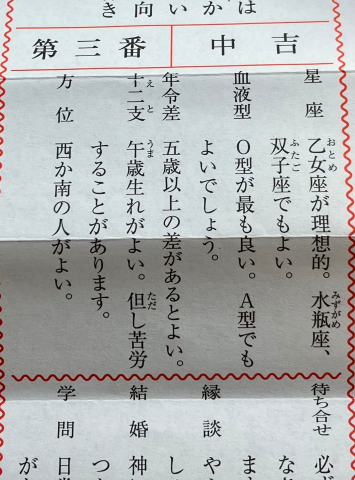 は
か
い
向
き
第三番
中吉
星座 乙女座が理想的。水瓶座、
おとめ
みずがめ
双子座でもよい。
ふたご
血液型 O型が最も良い。A型でも
よいでしょう。
年令差 五歳以上の差があるとよい。
十二支 午歳生れがよい。但し苦労
えと
うま
ただ
することがあります。
方位 西か南の人がよい。
待ち合せ 必
な
ま
縁談 や
し
結婚 神
つ
学問 日
が